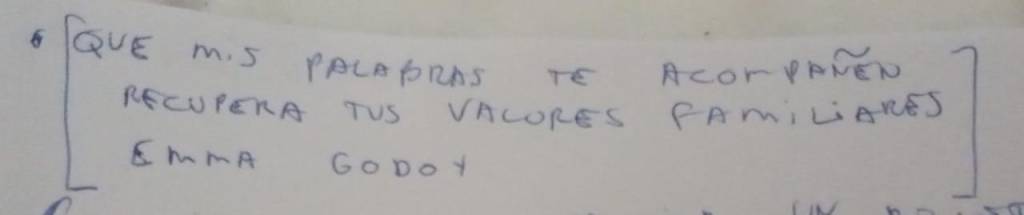 QUE MIS PALABRAS TE ACOMPAÑEN
RECUPERA TUS VALORES FAMILIARES
EMMA GODOY